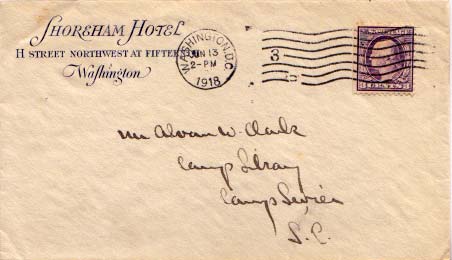 SHOREHAM HOTEL
H STREET NORTHWEST AT FIFTEENTH
Washington
WASHINGTON, D.C.
JUN 13
2-PM
1918
3
CENTS
Mr Alvan W. Clark
Camp Library
Camp Sevier
S. C.